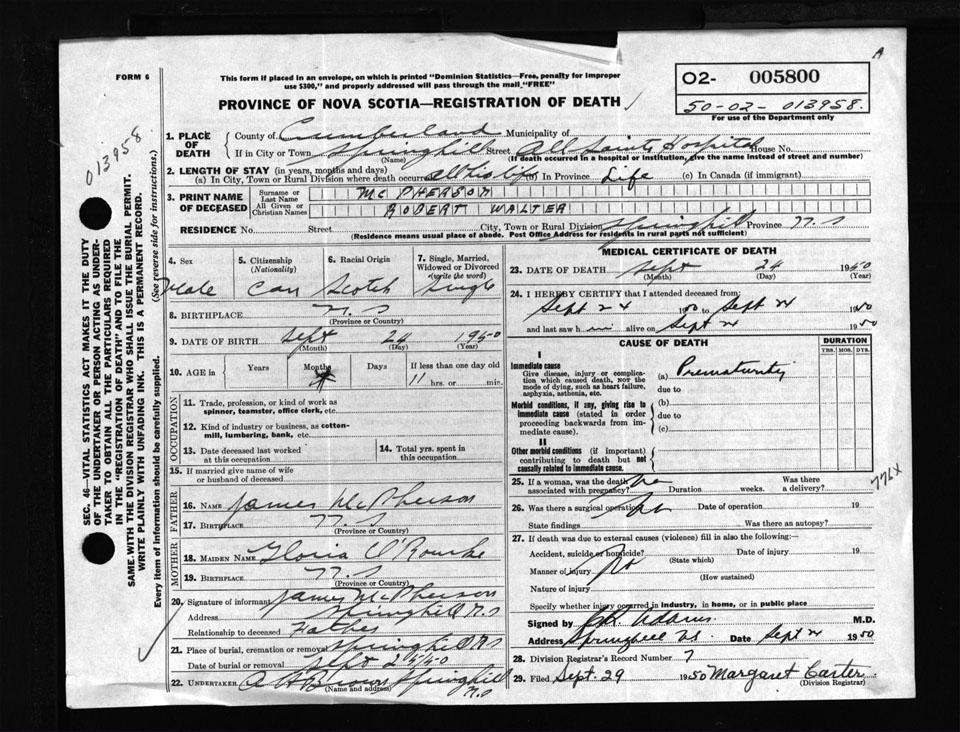 A
FORM 6
This form if placed in an envelope, on which is printed "Dominion Statistics—Free, penalty for improper
use $300," and properly addressed will pass through the mail "FREE"
O2- 005800
50-02-013958
For use of the Department only
PROVINCE OF NOVA SCOTIA—REGISTRATION OF DEATH
013958
SEC. 46—VITAL STATISTICS ACT MAKES IT THE DUTY
OF THE UNDERTAKER OR PERSON ACTING AS UNDER-
TAKER TO OBTAIN ALL THE PARTICULARS REQUIRED
IN THE "REGISTRATION OF DEATH" AND TO FILE THE
SAME WITH THE DIVISION REGISTRAR WHO SHALL ISSUE THE BURIAL PERMIT.
WRITE PLAINLY WITH UNFADING INK. THIS IS A PERMANENT RECORD.
Every item of information should be carefully supplied. (See reverse side for instructions.)
1. PLACE OF DEATH
County of Cumberland Municipality of
If in City or Town Springhill Street All Saints Hospital House No.
(Name) (If death occurred in a hospital or institution, give the name instead of street and number)
2. LENGTH OF STAY (in years, months and days)
(a) In City, Town or Rural Division where death occurred all his life (b) In Province Life (c) In Canada (if immigrant)
3. PRINT NAME OF DECEASED
Surname or Last Name MCPHERSON
All Given or Christian Names ROBERT WALTER
RESIDENCE No. Street City, Town or Rural Division Springhill Province N.S
(Residence means usual place of abode. Post Office Address for residents in rural parts not sufficient)
4. Sex Male
5. Citizenship (Nationality) Can
6. Racial Origin Scotch
7. Single, Married, Widowed or Divorced (write the word) Single
8. BIRTHPLACE N.S
(Province or Country)
9. DATE OF BIRTH Sept 24 1950
(Month) (Day) (Year)
10. AGE in Years Months Days If less than one day old
11 hrs. or min.
OCCUPATION
11. Trade, profession, or kind of work as spinner, teamster, office clerk, etc.
12. Kind of industry or business, as cotton-mill, lumbering, bank, etc.
13. Date deceased last worked at this occupation
14. Total yrs. spent in this occupation
15. If married give name of wife or husband of deceased
FATHER
16. Name James McPherson
17. Birthplace N.S
(Province or Country)
MOTHER
18. MAIDEN NAME Gloria O'Rourke
19. Birthplace N.S
(Province or Country)
20. Signature of informant James McPherson
Address Springhill N.S
Relationship to deceased Father
21. Place of burial, cremation or removal Springhill NS
Date of burial or removal Sept
22. UNDERTAKER A H Brown Springhill N.S
(Name and address)
MEDICAL CERTIFICATE OF DEATH
23. DATE OF DEATH Sept 24 1950
(Month) (Day) (Year)
24. I HEREBY CERTIFY that I attended deceased from:
Sept 24 1950 to Sept 24 1950
and last saw him alive on Sept 24 1950
CAUSE OF DEATH
DURATION
YRS. MOS. DYS.
I
Immediate cause
Give disease, injury or complication which caused death, not the mode of dying, such as heart failure, asphyxia, asthenia, etc.
(a) Prematurity
due to
Morbid conditions, if any, giving rise to immediate cause (stated in order proceeding backwards from immediate cause).
(b)
due to
(c)
II
Other morbid conditions (if important) contributing to death but not causally related to immediate cause.
776X
25. If a woman, was the death associated with pregnancy? Duration weeks. Was there a delivery?
26. Was there a surgical operation? No Date of operation 19
State findings Was there an autopsy?
27. If death was due to external causes (violence) fill in also the following:
Accident, suicide or homicide? No Date of injury 19
(State which)
Manner of injury
(How sustained)
Nature of injury
Specify whether injury occurred in industry, in home, or in public place
Signed by Adams M.D.
Address Springhill NS Date Sept 24 1950
28. Division Registrar's Record Number 7
29. Filed Sept. 29 1950 Margaret Carter
(Division Registrar)